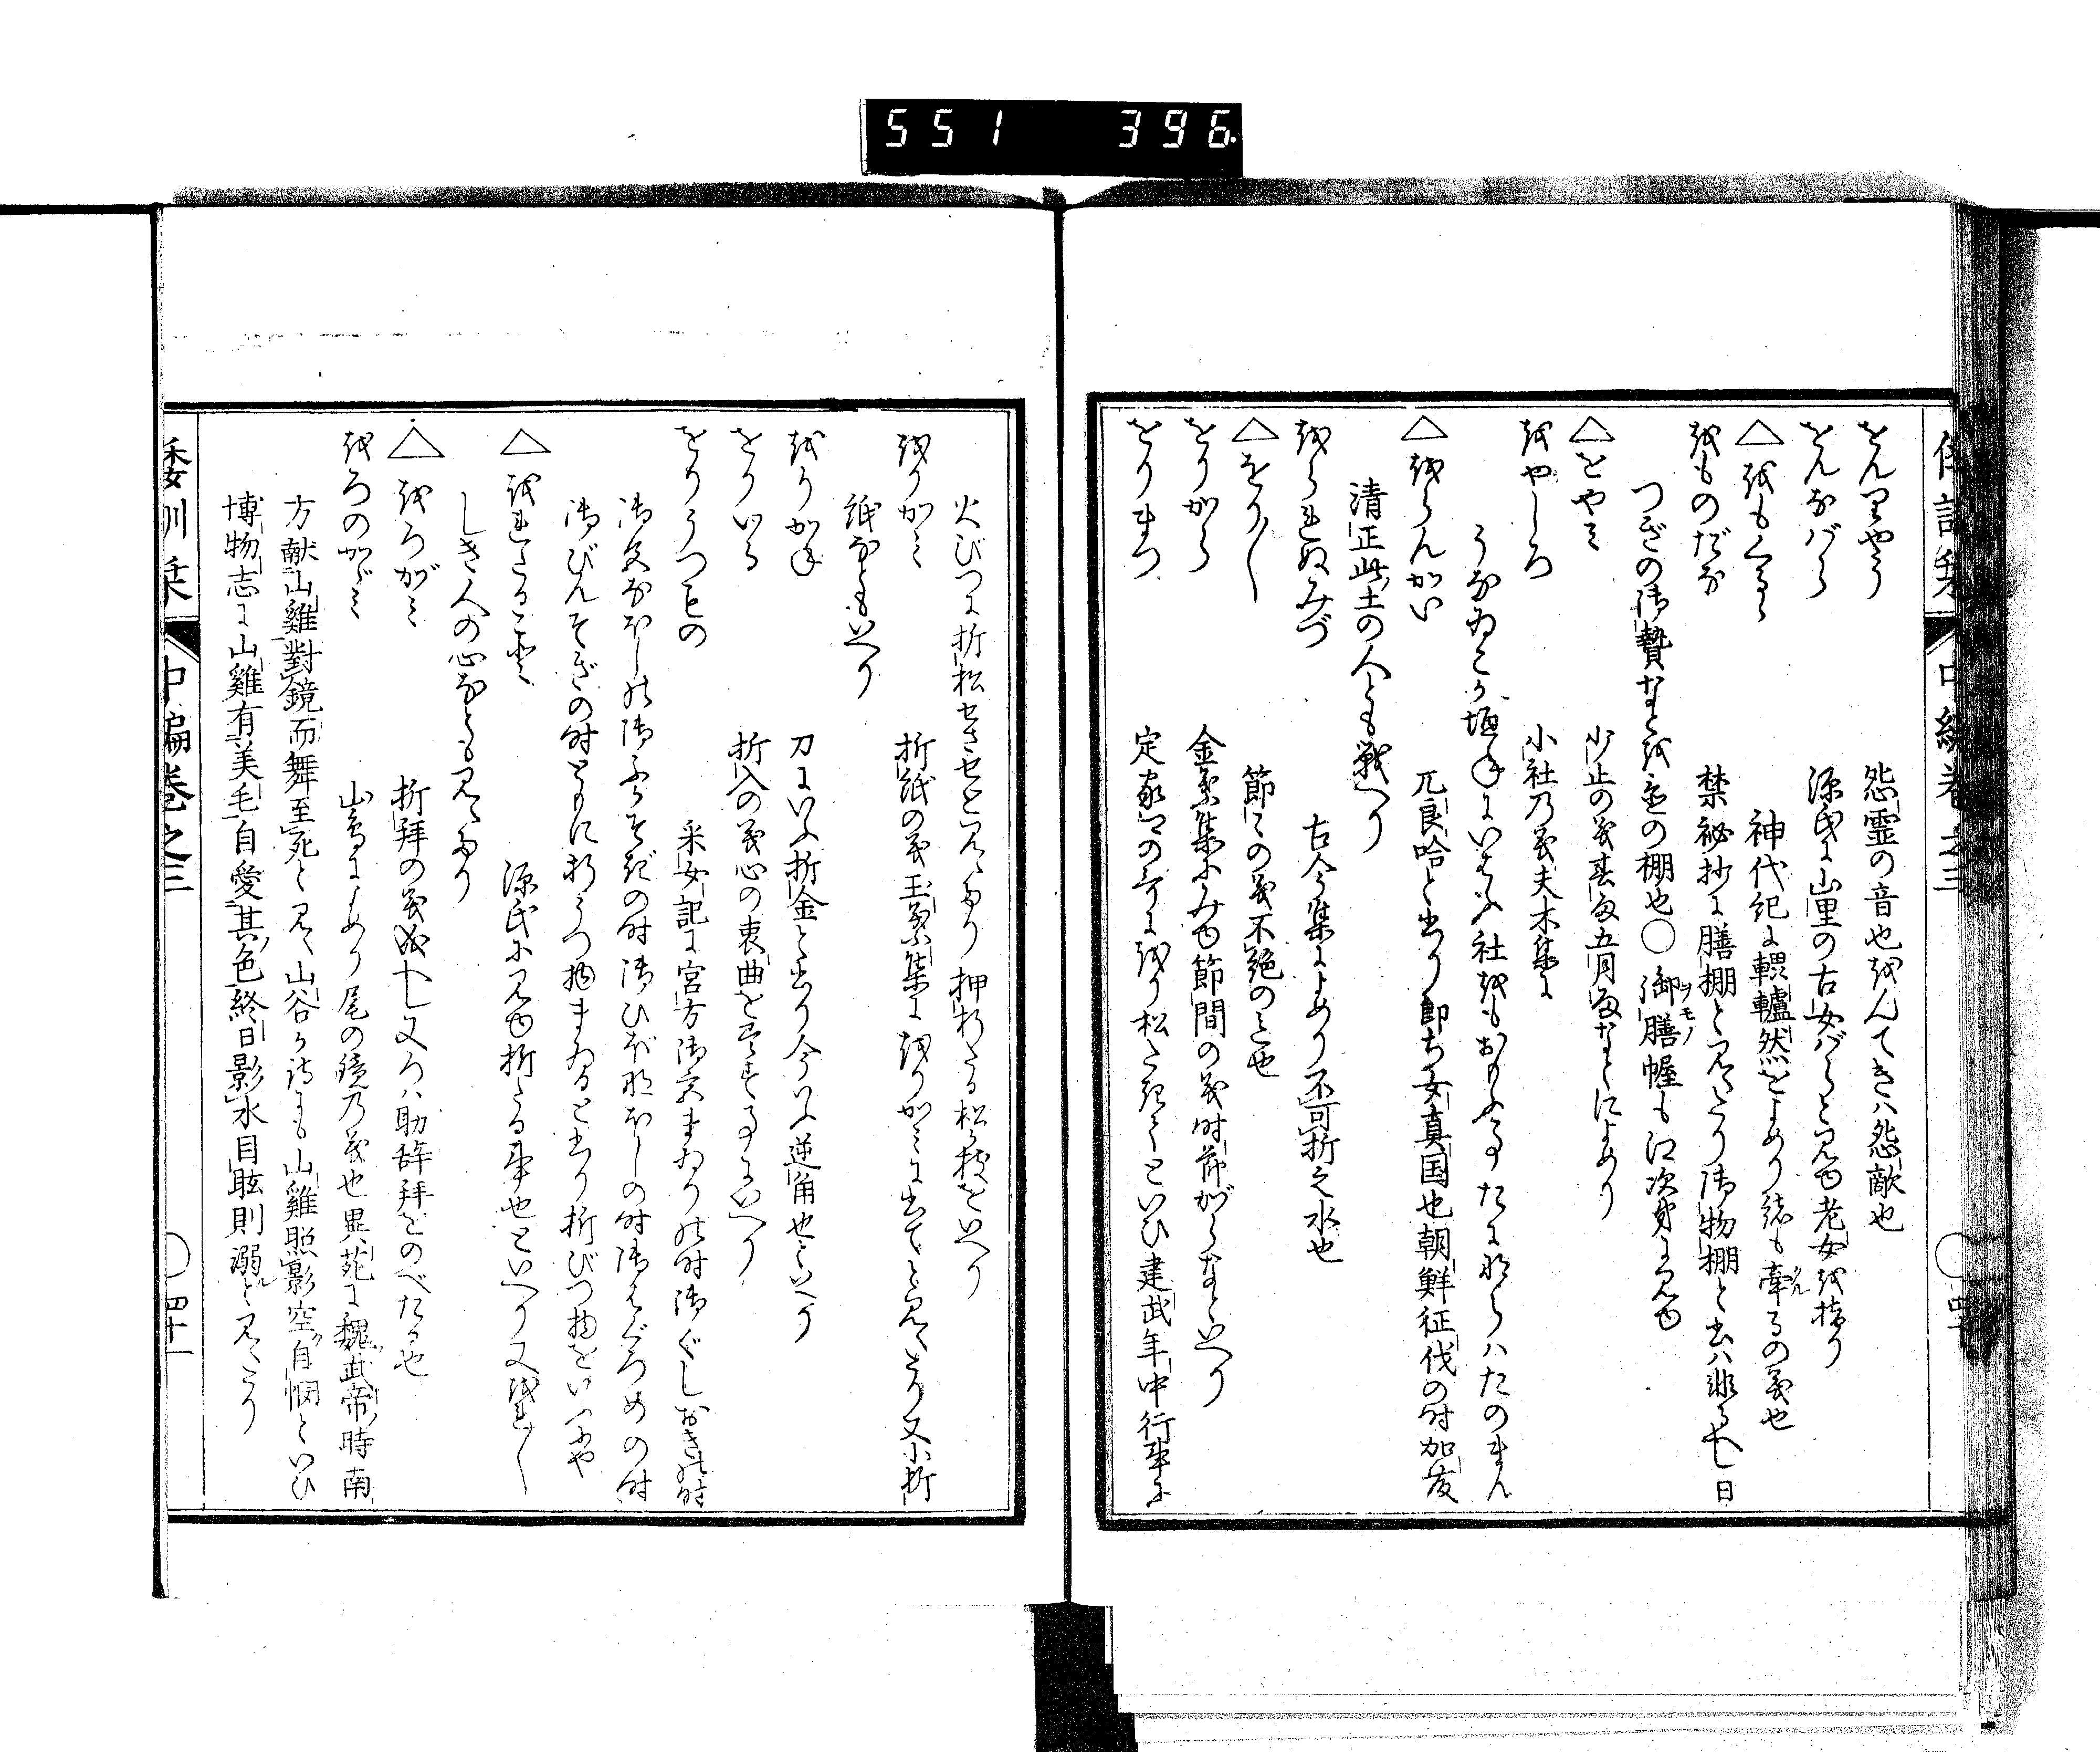 551 396
をんりやう 怨霊の音也をんてきハ怨敵也
をんなバら 源氏に山里の古女バらと見ゆ老女を指り
△をもくるゝ 神代紀に轠轤然をよめり緒も牽るの義也
をものだな 禁祕抄に膳棚と見えたり御物棚と書ハ非る也へし日
つぎの御贄なとを置の棚也〇御膳幄も江次第に見ゆ
ヲモノ
△をやミ 少止の義春雨五月雨なとによめり
をやしろ 小社乃義夫木集に
うなゐこか垣ねにいはふ社をもおもふ事たにならハたのまん
△をらんかい 兀良哈と書り即ち女真国也朝鮮征伐の时加藤
清正此土の人とも戦へり
をられぬみづ 古今集によめり不可折之水也
△をり〳〵 節〻の義不絶のミ也
をりがら 金葉集にみゆ節間の義时節がらなといへり
をりまつ 定家卿の哥にをり松たきてといひ建武年中行事に
火びつに折松せさせと見えたり押折たる松か枝をいへり
をりかミ 折紙の義玉葉集にをりかミに書てと見えたり又小折
紙なともいへり
をりかね 刀にいふ折金と書り今いふ逆角也といへり
をりいる 折入の義心の衷曲を尽す事にいへり
をりうつもの 采女記に宮方御衣まゐりの时御ぐしおきの时
御気なほしの时御ふかそぎの时御ひぼなほしの时御はぐろめの时
御びんそぎの时ともに折うつ物まゐると書り折びつ物をいふにや
△をれたるこゑ 源氏に見ゆ折たる声也といへり又をれ〳〵
しき人の心なとも見えたり
△をろがミ 折拜の義成へし又ろハ助辞拜をのべたる也
をろのかゞミ 山鳥によめり尾の鏡乃義也異苑に魏武帝時南
方献山雞對鏡而舞至死と見え山谷か詩にも山雞照影空自憫といひ
博物志に山雞有美毛自愛其色終日影水目眩則溺と見えたり
倭訓栞 中編巻之三 〇四十一